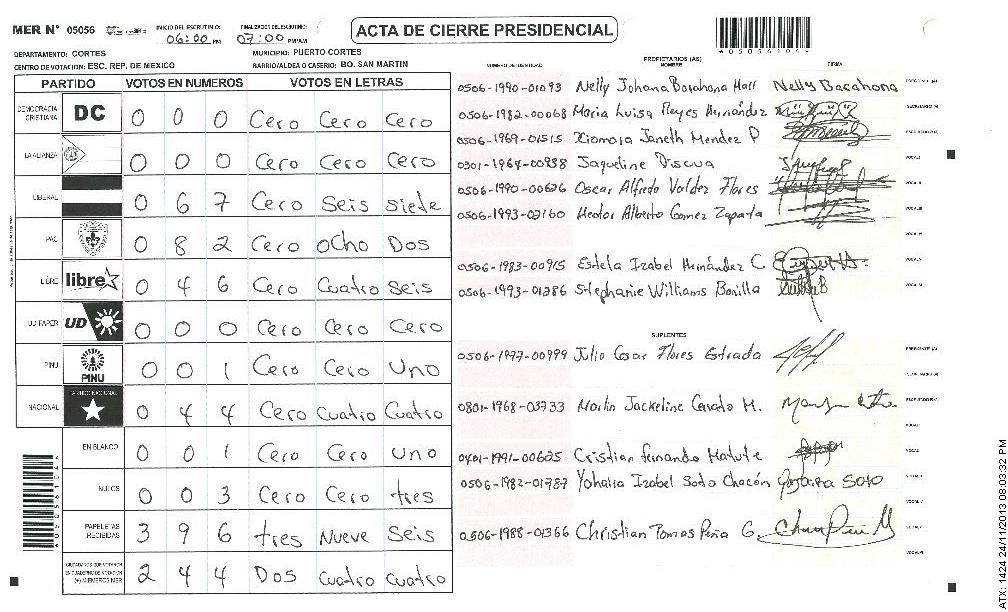 MER N° 05056
INICIO DEL ESCRUTINIO:
06:00 PM
FINALIZACION DEL ESCRUTINIO:
07:00 PM/AM
ACTA DE CIERRE PRESIDENCIAL
DEPARTAMENTO: CORTES
MUNICIPIO: PUERTO CORTES
CENTRO DE VOTACION: ESC. REP. DE MEXICO
BARRIO/ALDEA O CASERIO: BO. SAN MARTIN
PARTIDO VOTOS EN NUMEROS VOTOS EN LETRAS
DEMOCRACIA CRISTIANA DC 0 0 0 Cero Cero Cero
LA ALIANZA 0 0 0 Cero Cero Cero
LIBERAL 0 6 7 Cero Seis Siete
PAC 0 8 2 Cero Ocho Dos
LIBRE libre 0 4 6 Cero Cuatro Seis
UD-FAPER UD 0 0 0 Cero Cero Cero
PINU PINU 0 0 1 Cero Cero Uno
NACIONAL PARTIDO NACIONAL 0 4 4 Cero Cuatro Cuatro
EN BLANCO 0 0 1 Cero Cero Uno
NULOS 0 0 3 Cero Cero tres
PAPELETAS RECIBIDAS 3 9 6 tres Nueve Seis
CIUDADANOS QUE VOTARON EN CUADERNO DE VOTACION (+) MIEMBROS MER 2 4 4 Dos cuatro cuatro
NUMERO DE IDENTIDAD
PROPIETARIOS (AS)
NOMBRE
FIRMA
0506-1990-01093 Nelly Johana Barahona Hall Nelly Barahona
0506-1982-00068 Maria Luisa Reyes Hernández
0506-1969-01515 Xiomara Janeth Mendez P
0301-1964-00938 Jaqueline Discua
0506-1990-00626 Oscar Alfredo Valdez Flores
0506-1993-02160 Hector Alberto Gomez Zapata
0506-1983-00915 Estela Izabel Hernández C.
0506-1993-01286 Stephanie Williams Bonilla
SUPLENTES
0506-1977-00999 Julio Cesar Flores Estrada
0801-1968-03733 Marlin Jackeline M.
0401-1991-00625 Cristian fernando Matute
0506-1982-01787 Yohalia Izabel Soto Chacón Soto
0506-1988-01366 Christian Tomas Peña G.
ATX: 1424 24/11/2013 08:03:32 PM